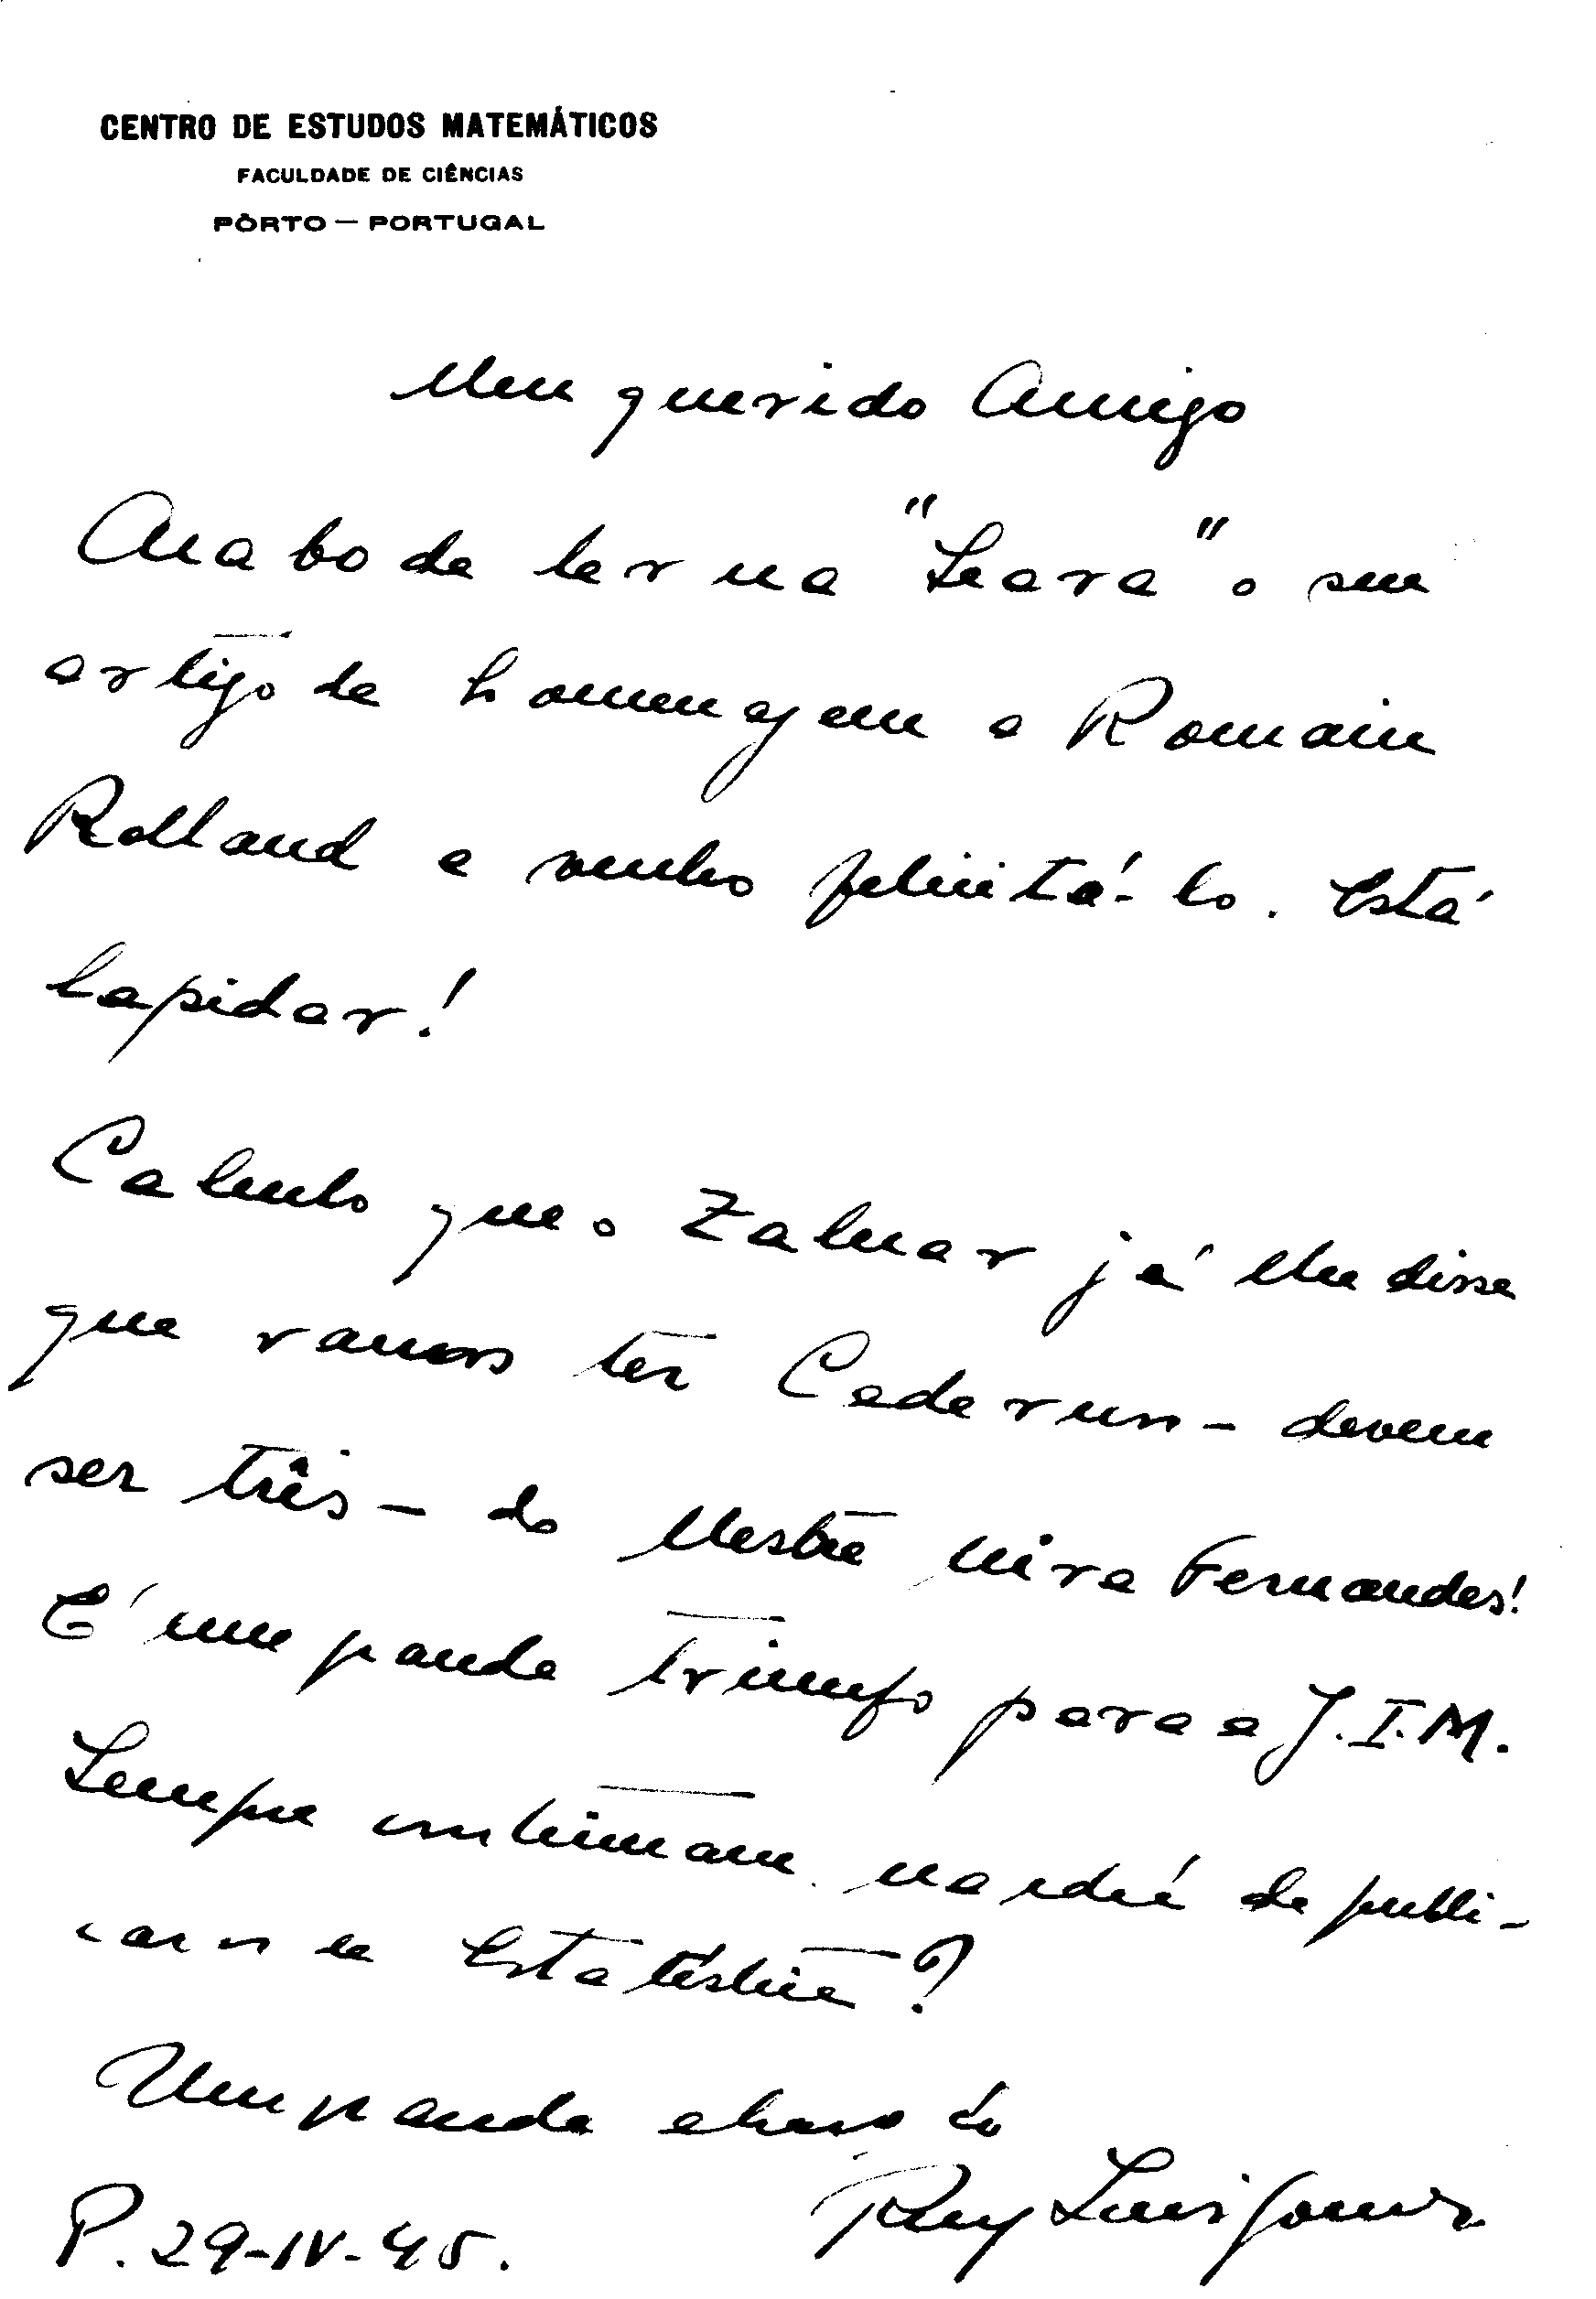 CENTRO DE ESTUDOS MATEMÁTICOS
FACULDADE DE CIÊNCIAS
PÔRTO — PORTUGAL
Meu querido Amigo
Acabo de ler na "Seara" o seu
artigo de homenagem a Romain
Rolland e venho felicitá-lo. Está
lapidar!
Calculo que o Zaluar já lhe disse
que vamos ter Cadernos - devem
ser três - do Mestre Mira Fernandes!
É um grande triunfo para a J.I.M.
Sempre continuam na ideia de publi-
car a Estatística?
Um grande abraço do
Ruy Luís Gomes
P. 29-IV-45.